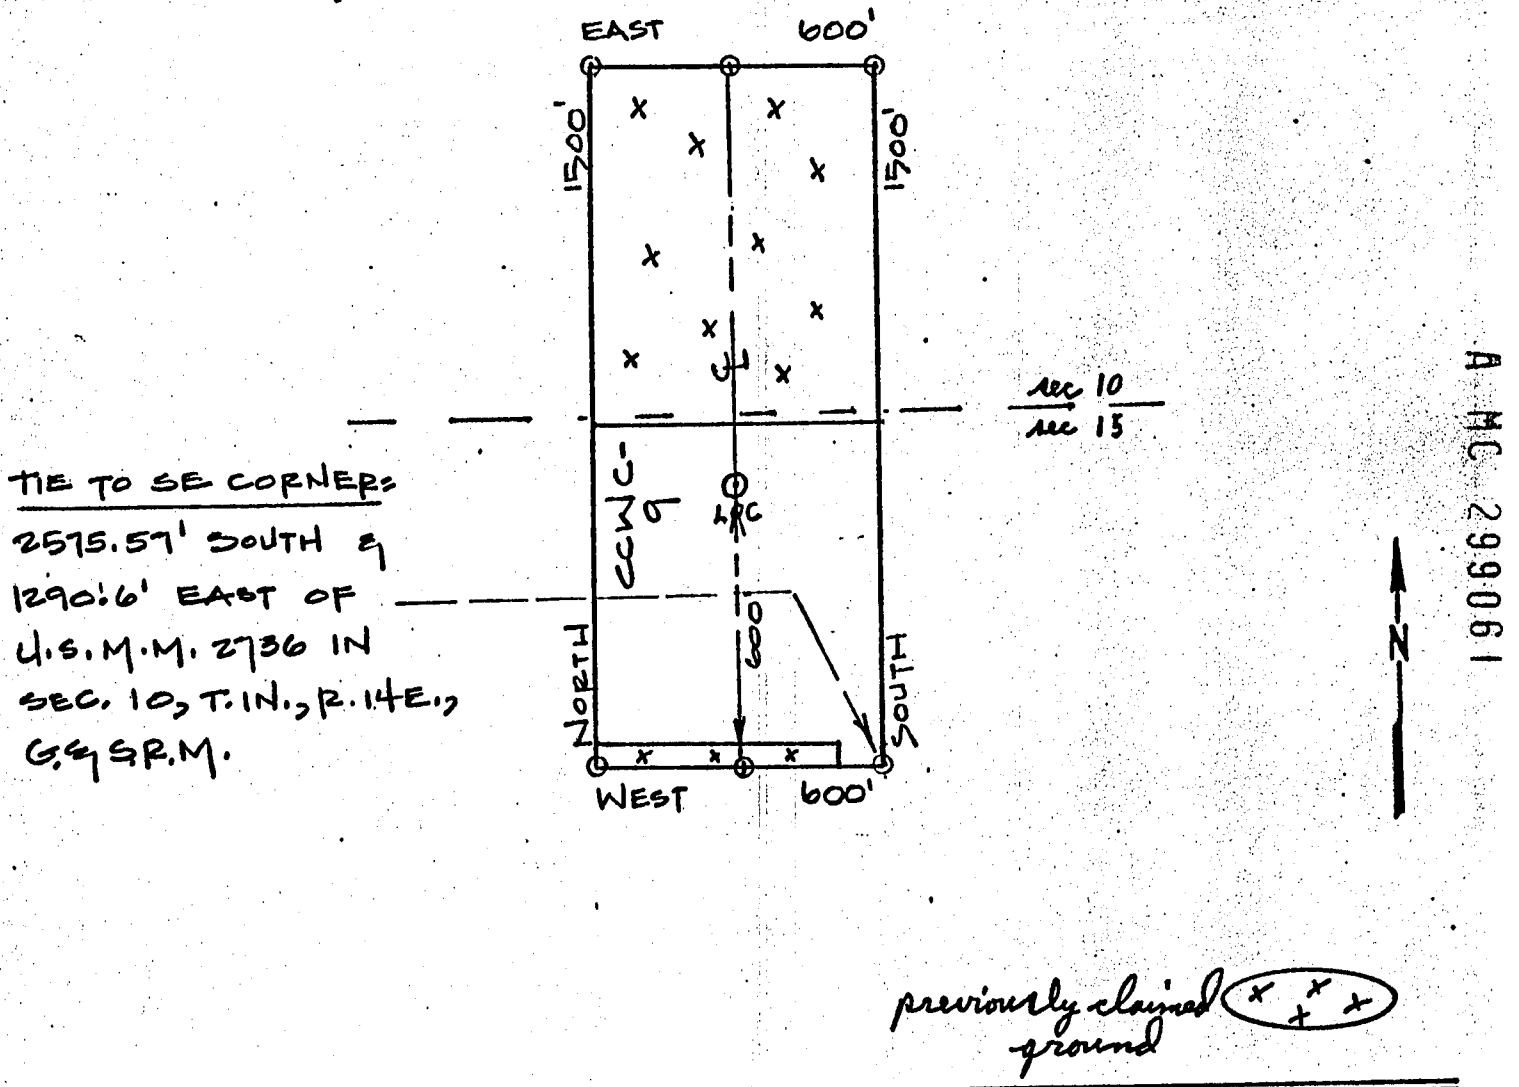 EAST 600'
1500'
1500'
x x
x x
x x
x x
x C L x
sec 10
sec 15
TIE TO SE CORNER:
2575.57' SOUTH &
1290.6' EAST OF
U.S.M.M. 2736 IN
SEC. 10, T.1N., R.14E.,
G.&S.R.M.
CCWC-
9
LOC
600
NORTH
SOUTH
x x x
WEST 600'
N
A MC 299061
previously claimed x x x x
ground